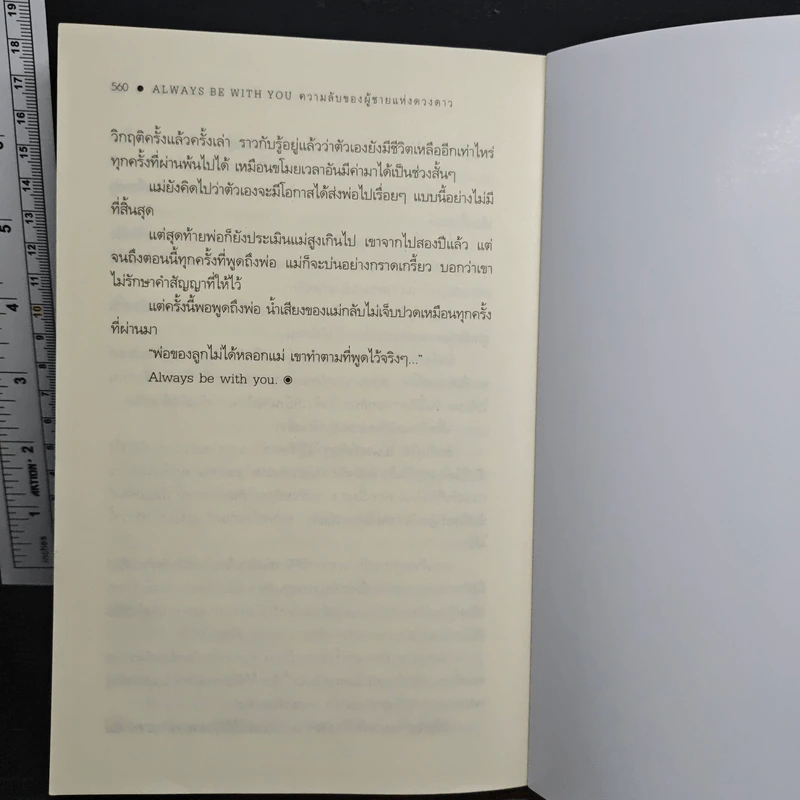 560 ● ALWAYS BE WITH YOU ความลับของผู้ชายแห่งดวงดาว
วิกฤติครั้งแล้วครั้งเล่า ราวกับรู้อยู่แล้วว่าตัวเองยังมีชีวิตเหลืออีกเท่าไหร่
ทุกครั้งที่ผ่านพ้นไปได้ เหมือนขโมยเวลาอันมีค่ามาได้เป็นช่วงสั้นๆ
แม่ยังคิดไปว่าตัวเองจะมีโอกาสได้ส่งพ่อไปเรื่อยๆ แบบนี้อย่างไม่มี
ที่สิ้นสุด
แต่สุดท้ายพ่อก็ยังประเมินแม่สูงเกินไป เขาจากไปสองปีแล้ว แต่
จนถึงตอนนี้ทุกครั้งที่พูดถึงพ่อ แม่ก็จะบ่นอย่างกราดเกรี้ยว บอกว่าเขา
ไม่รักษาคำสัญญาที่ให้ไว้
แต่ครั้งนี้พอพูดถึงพ่อ น้ำเสียงของแม่กลับไม่เจ็บปวดเหมือนทุกครั้ง
ที่ผ่านมา
“พ่อของลูกไม่ได้หลอกแม่ เขาทำตามที่พูดไว้จริงๆ...”
Always be with you. ◉
19
18
17
16
15
14
13
12
11
10
5
4
3
2
1